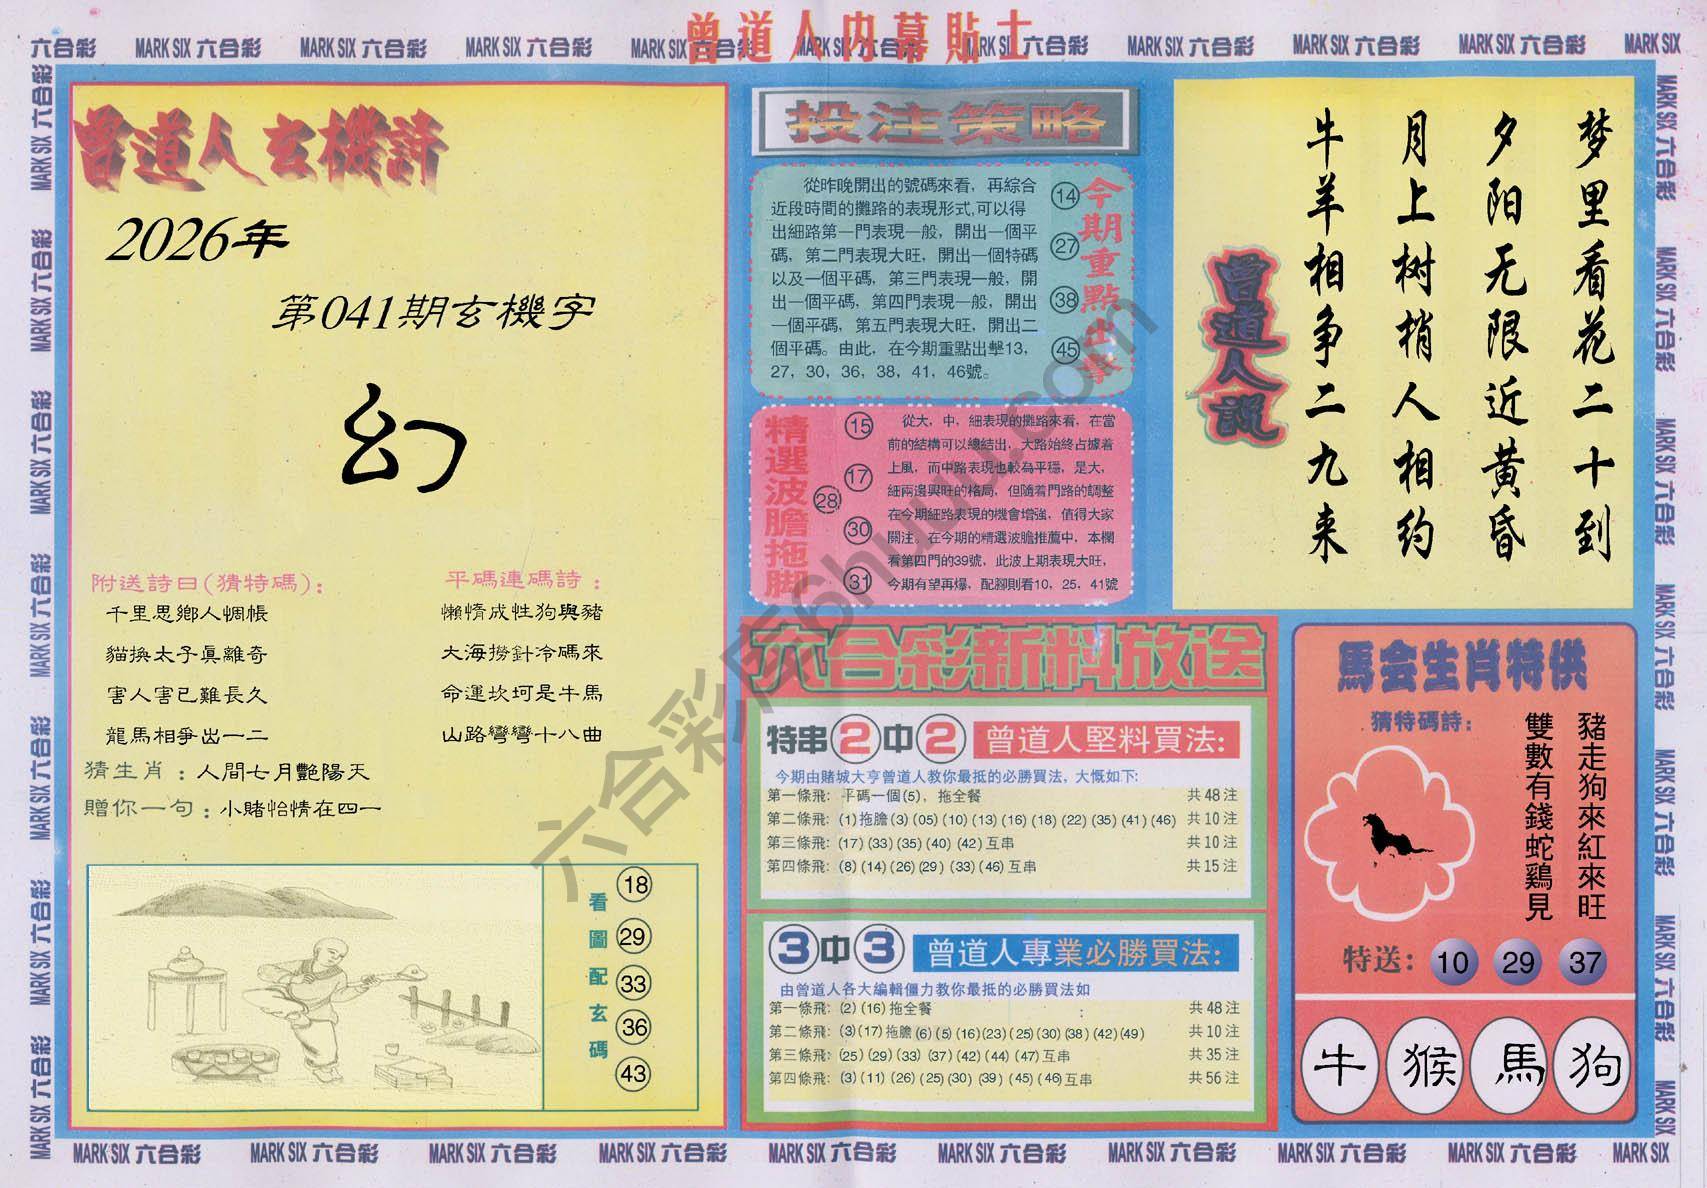 曾道人内幕貼士
六合彩 MARK SIX 六合彩 MARK SIX 六合彩 MARK SIX 六合彩 MARK SIX 六合彩 MARK SIX 六合彩 MARK SIX 六合彩 MARK SIX 六合彩 MARK SIX 六合彩 MARK SIX 六合彩 MARK SIX
曾道人玄機詩
2026年
第041期玄機字
幻
附送詩曰(猜特碼):
千里思鄉人惆帳
貓換太子真離奇
害人害已難長久
龍馬相爭出一二
平碼連碼詩:
懶惰成性狗與豬
大海撈針冷碼來
命運坎坷是牛馬
山路彎彎十八曲
猜生肖:人間七月艷陽天
贈你一句:小賭怡情在四一
看圖配玄碼
18
29
33
36
43
投注策略
從昨晚開出的號碼來看，再綜合
近段時間的攤路的表現形式,可以得
出細路第一門表現一般，開出一個平
碼，第二門表現大旺，開出一個特碼
以及一個平碼，第三門表現一般，開
出一個平碼，第四門表現一般，開出
一個平碼，第五門表現大旺，開出二
個平碼。由此，在今期重點出擊13，
27，30，36，38，41，46號。
14
27
38
45
今期重點出擊
精選波膽拖脚
15
17
28
30
31
從大，中，細表現的攤路來看，在當
前的結構可以總結出，大路始終占據着
上風，而中路表現也較為平穩，是大，
細兩邊興旺的格局，但隨着門路的調整
在今期細路表現的機會增強，值得大家
關注。在今期的精選波膽推薦中，本欄
看第四門的39號，此波上期表現大旺，
今期有望再爆，配腳則看10，25，41號
六合彩新料放送
特串2中2 曾道人堅料買法:
今期由賭城大亨曾道人教你最抵的必勝買法，大慨如下:
第一條飛: 平碼一個(5)，拖全餐 共48注
第二條飛: (1)拖膽(3)(05)(10)(13)(16)(18)(22)(35)(41)(46) 共10注
第三條飛: (17)(33)(35)(40)(42)互串 共10注
第四條飛: (8)(14)(26)(29)(33)(46)互串 共15注
3中3 曾道人專業必勝買法:
由曾道人各大編輯僵力教你最抵的必勝買法如
第一條飛: (2)(16)拖全餐 : 共48注
第二條飛: (3)(17)拖膽(6)(5)(16)(23)(25)(30)(38)(42)(49) 共10注
第三條飛: (25)(29)(33)(37)(42)(44)(47)互串 共35注
第四條飛: (3)(11)(26)(25)(30)(39)(45)(46)互串 共56注
梦里看花二十到
夕阳无限近黄昏
月上树梢人相约
牛羊相争二九来
曾道人說
馬会生肖特供
猜特碼詩:
豬走狗來紅來旺
雙數有錢蛇鷄見
特送: 10 29 37
牛 猴 馬 狗
六合彩库6huu.com
MARK SIX 六合彩 MARK SIX 六合彩 MARK SIX 六合彩 MARK SIX 六合彩 MARK SIX 六合彩 MARK SIX 六合彩 MARK SIX 六合彩 MARK SIX 六合彩 MARK SIX 六合彩 MARK SIX
MARK SIX 六合彩 MARK SIX 六合彩 MARK SIX 六合彩 MARK SIX 六合彩 MARK SIX 六合彩 MARK SIX 六合彩 MARK SIX 六合彩
MARK SIX 六合彩 MARK SIX 六合彩 MARK SIX 六合彩 MARK SIX 六合彩 MARK SIX 六合彩 MARK SIX 六合彩 MARK SIX